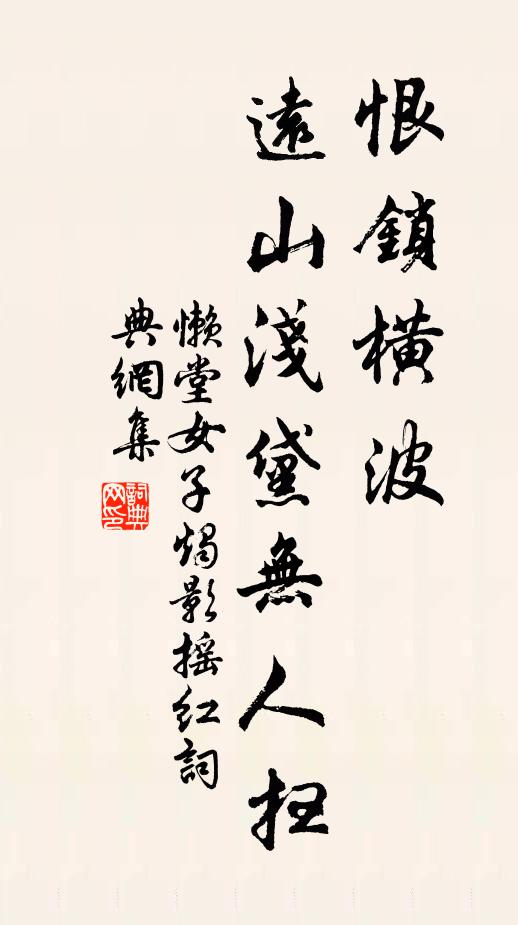 恨鎖橫波
遠山淺黛無人扫
懶堂女子燭影搖紅詞
典網集
詞典网印